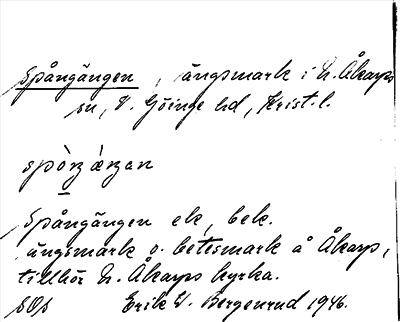 Spångängen, ängsmark i N. Åkarps
sn, V. Göinge hd, Krist. l.
spòŋʒ æŋan
Spångängen ek, bek.
ängsmark o. betesmark å Åkarp,
tillhör N. Åkarps kyrka.
Erik W. Bergenrud 1946.